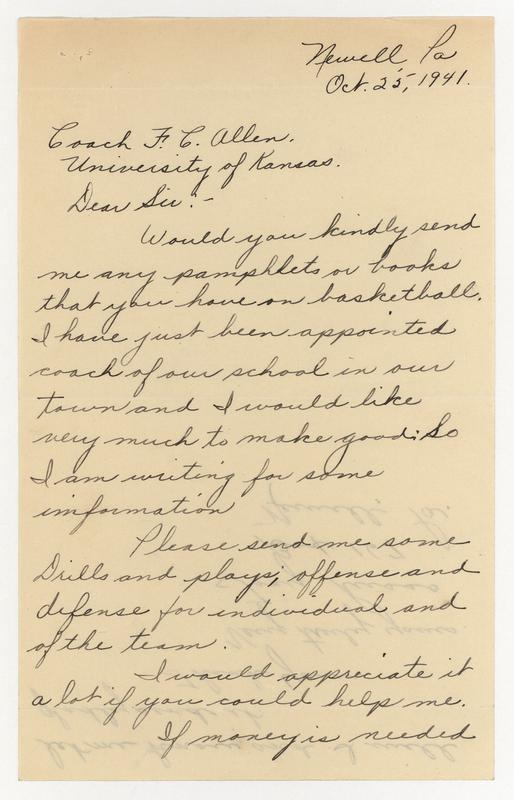 Newell, Pa
Oct. 25, 1941.
Coach F. C. Allen.
University of Kansas.
Dear Sir:-
Would you kindly send
me any pamphlets or books
that you have on basketball.
I have just been appointed
coach of our school in our
town and I would like
very much to make good; So
I am writing for some
imformation
Please send me some
Drills and plays; offense and
defense for individual and
of the team.
I would appreciate it
a lot if you could help me.
If money is needed